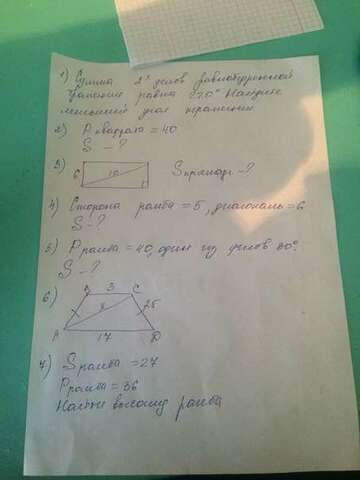 1) Сумма 2ˣ углов равнобедренной
трапеции равна 270° Найдите
меньший угол трапеции
2) P квадрата = 40
S - ?
3) 6 10 S прямоуг - ?
4) Сторона ромба = 5, диагональ = 6
S - ?
5) P ромба = 40, один из углов 30°.
S - ?
6) B 3 C
25
A 17 D
7) S ромба = 27
P ромба = 36
Найти высоту ромба